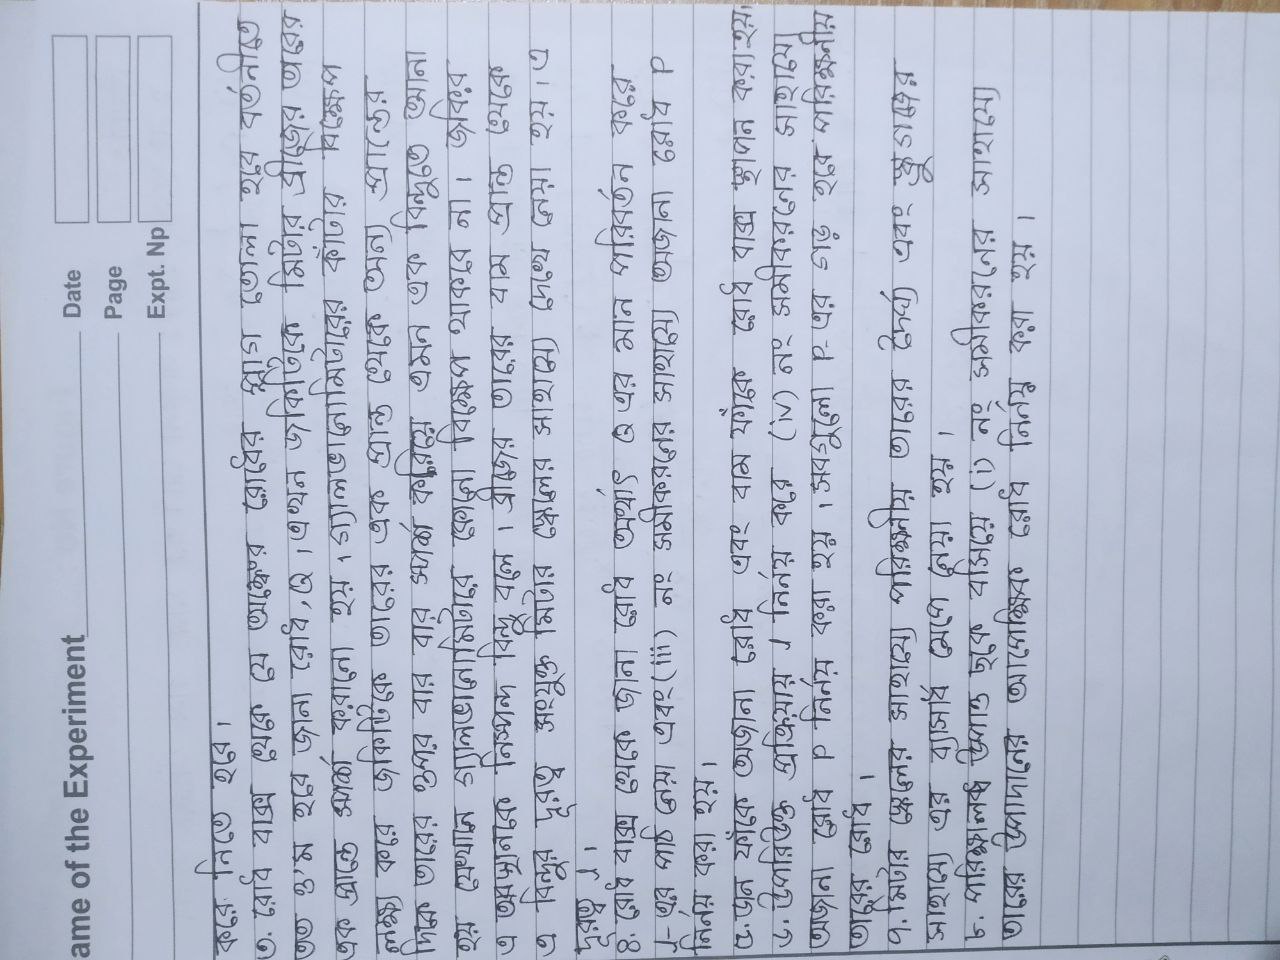 Name of the Experiment
Date
Page
Expt. Np
করে নিতে হবে।
৩. রোধ বাক্স থেকে যে অঙ্কের রোধের প্লাগ তোলা হবে বর্তনীতে
তত ও'ম হবে জানা রোধ, Q । এখন জকিটিকে মিটার ব্রীজের তারের
এক প্রান্তে স্পর্শ করানো হয়, গ্যালভানোমিটারের কাঁটার বিক্ষেপ
লক্ষ্য করে জকিটিকে তারের এক প্রান্ত থেকে অন্য প্রান্তের
দিকে তারের উপর বার বার স্পর্শ করিয়ে এমন এক বিন্দুতে আনা
হয় যেখানে গ্যালভানোমিটারে কোনো বিক্ষেপ থাকবে না । জকির
এ অবস্থানকে নিস্পন্দ বিন্দু বলে । ব্রীজের তারের বাম প্রান্ত থেকে
এ বিন্দুর দূরত্ব সংযুক্ত মিটার স্কেলের সাহায্যে দেখে নেয়া হয় । এ
দূরত্ব l ।
৪. রোধ বাক্স থেকে জানা রোধ অর্থাৎ Q এর মান পরিবর্তন করে
l এর পাঠ নেয়া এবং (iii) নং সমীকরণের সাহায্যে অজানা রোধ P
নির্ণয় করা হয় ।
৫. ডান ফাঁকে অজানা রোধ এবং বাম ফাঁকে রোধ বাক্স স্থাপন করা হয়,
৬. উপরিউক্ত প্রক্রিয়ায় l নির্ণয় করে (iv) নং সমীকরণের সাহায্যে
অজানা রোধ P নির্ণয় করা হয় । সবগুলো P-এর গড় হবে পরীক্ষণীয়
তারের রোধ ।
৭. মিটার স্কেলের সাহায্যে পরীক্ষণীয় তারের দৈর্ঘ্য এবং স্ক্রু গজের
সাহায্যে এর ব্যাসার্ধ মেপে নেয়া হয় ।
৮. পরীক্ষালব্ধ উপাত্ত হতে বসিয়ে (i) নং সমীকরণের সাহায্যে
তারের উপাদানের আপেক্ষিক রোধ নির্ণয় করা হয় ।